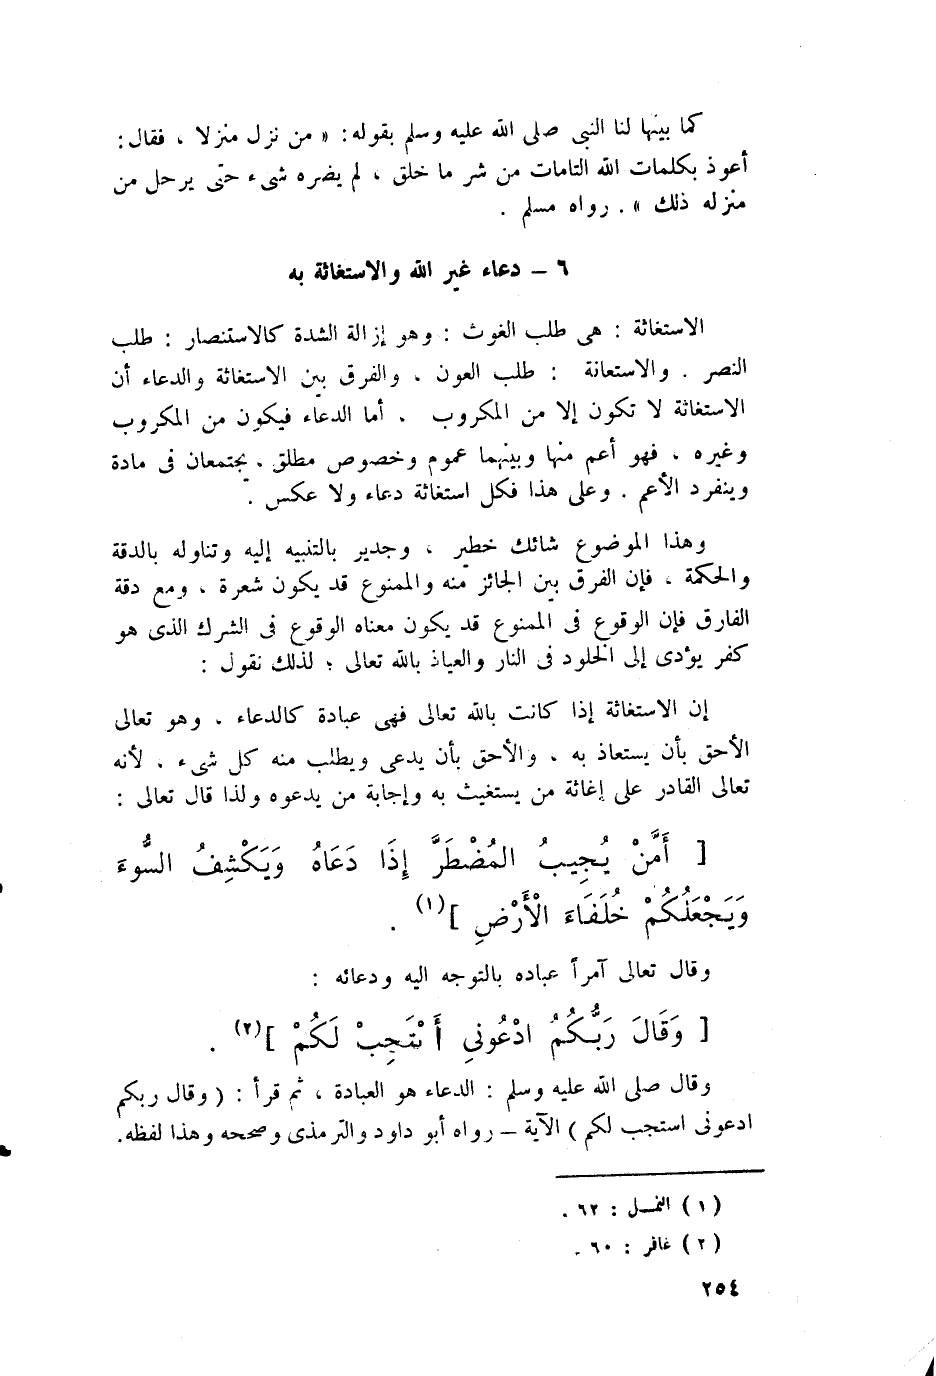 كما بينها لنا النبى صلى الله عليه وسلم بقوله : « من نزل منزلا ، فقال :
أعوذ بكلمات الله التامات من شر ما خلق ، لم يضره شىء حتى يرحل من
منزله ذلك » . رواه مسلم .
٦ – دعاء غير الله والاستغاثة به
الاستغاثة : هى طلب الغوث : وهو إزالة الشدة كالاستنصار : طلب
النصر . والاستعانة : طلب العون . والفرق بين الاستغاثة والدعاء أن
الاستغاثة لا تكون إلا من المكروب . أما الدعاء فيكون من المكروب
وغيره ، فهو أعم منها وبينهما عموم وخصوص مطلق . يجتمعان فى مادة
وينفرد الأعم . وعلى هذا فكل استغاثة دعاء ولا عكس .
وهذا الموضوع شائك خطير ، وجدير بالتنبيه إليه وتناوله بالدقة
والحكمة ، فإن الفرق بين الجائز منه والممنوع قد يكون شعرة ، ومع دقة
الفارق فإن الوقوع فى الممنوع قد يكون معناه الوقوع فى الشرك الذى هو
كفر يؤدى إلى الخلود فى النار والعياذ بالله تعالى ؛ لذلك نقول :
إن الاستغاثة إذا كانت بالله تعالى فهى عبادة كالدعاء . وهو تعالى
الأحق بأن يستعاذ به . والأحق بأن يدعى ويطلب منه كل شىء . لأنه
تعالى القادر على إغاثة من يستغيث به وإجابة من يدعوه ولذا قال تعالى :
[ أَمَّنْ يُجِيبُ المُضْطَرَّ إِذَا دَعَاهُ وَيَكْشِفُ السُّوءَ
وَيَجْعَلُكُمْ خُلَفَاءَ الْأَرْضِ ](١) .
وقال تعالى آمراً عباده بالتوجه اليه ودعائه :
[ وَقَالَ رَبُّكُمُ ادْعُونِي أَسْتَجِبْ لَكُمْ ](٢) .
وقال صلى الله عليه وسلم : الدعاء هو العبادة ، ثم قرأ : ( وقال ربكم
ادعونى استجب لكم ) الآية – رواه أبو داود والترمذى وصححه وهذا لفظه.
( ١ ) النمل : ٦٢ .
( ٢ ) غافر : ٦٠ .
٢٥٤